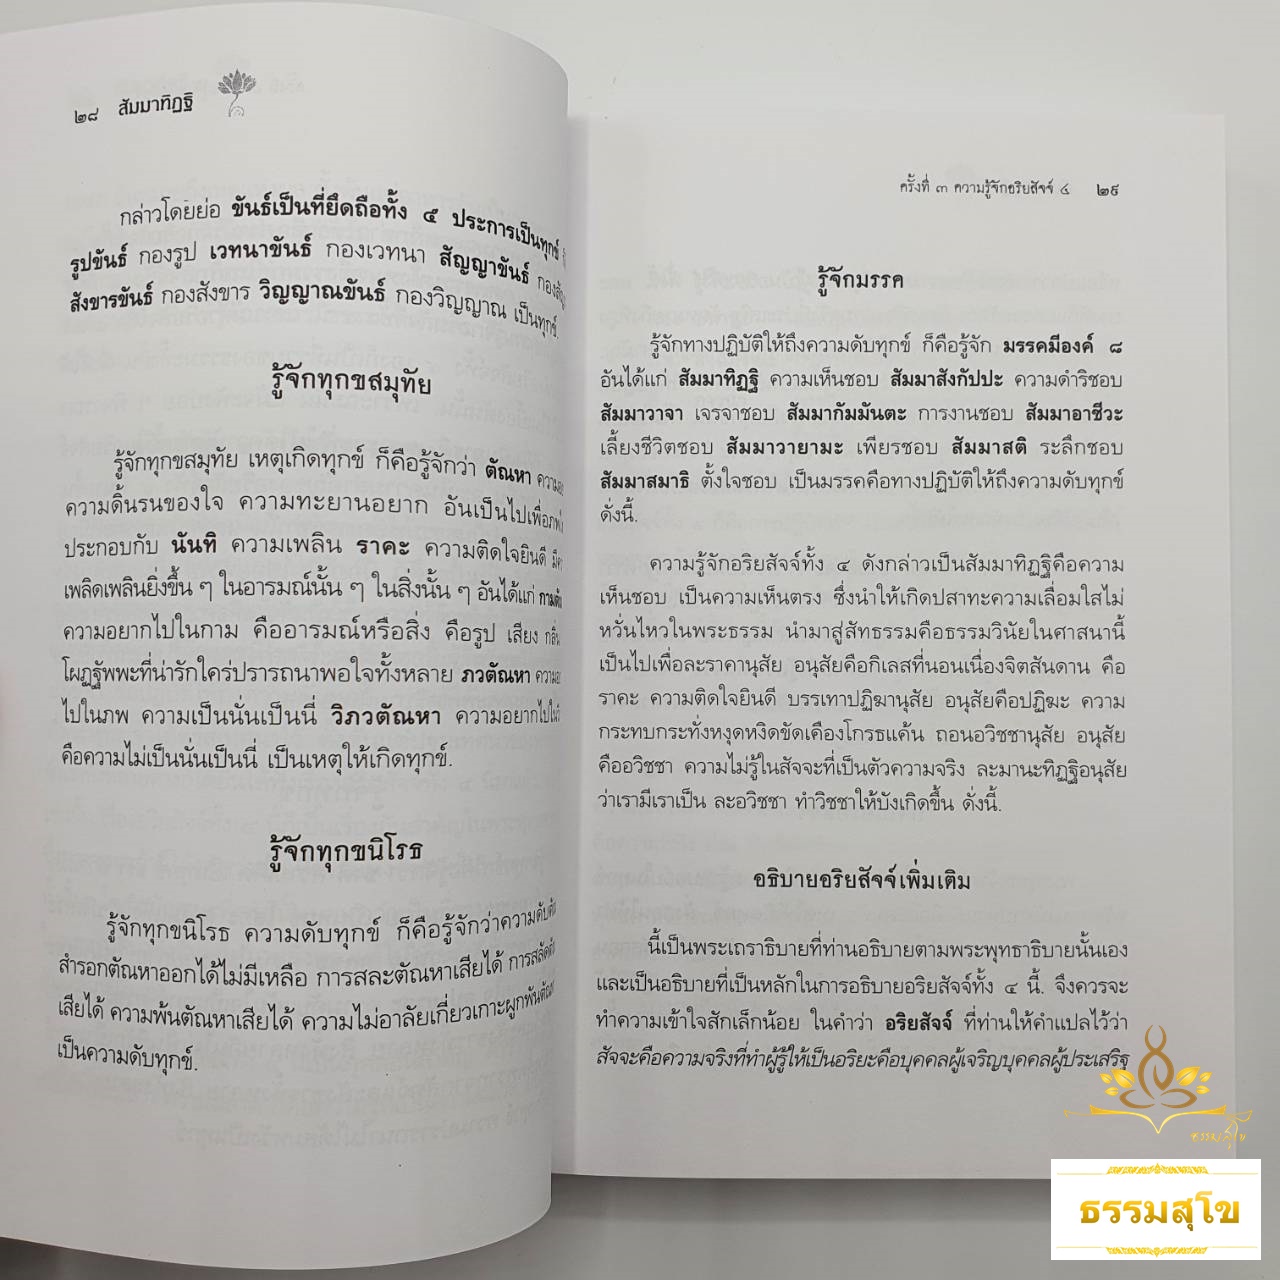 ๒๘ สัมมาทิฏฐิ
กล่าวโดยย่อ ขันธ์เป็นที่ยึดถือทั้ง ๕ ประการเป็นทุกข์
รูปขันธ์ กองรูป เวทนาขันธ์ กองเวทนา สัญญาขันธ์
สังขารขันธ์ กองสังขาร วิญญาณขันธ์ กองวิญญาณ เป็นทุกข์.
รู้จักทุกขสมุทัย
รู้จักทุกขสมุทัย เหตุเกิดทุกข์ ก็คือรู้จักว่า ตัณหา
ความดิ้นรนของใจ ความทะยานอยาก อันเป็นไปเพื่อภพ
ประกอบกับ นันทิ ความเพลิน ราคะ ความติดใจยินดี มี
เพลิดเพลินยิ่งขึ้น ๆ ในอารมณ์นั้น ๆ ในสิ่งนั้น ๆ อันได้แก่
ความอยากไปในกาม คืออารมณ์หรือสิ่ง คือรูป เสียง กลิ่น
โผฏฐัพพะที่น่ารักใคร่ปรารถนาพอใจทั้งหลาย ภวตัณหา
ไปในภพ ความเป็นนั่นเป็นนี่ วิภวตัณหา ความอยากไปใน
คือความไม่เป็นนั่นเป็นนี่ เป็นเหตุให้เกิดทุกข์.
รู้จักทุกขนิโรธ
รู้จักทุกขนิโรธ ความดับทุกข์ ก็คือรู้จักว่าความดับ
สำรอกตัณหาออกได้ไม่มีเหลือ การสละตัณหาเสียได้
เสียได้ ความพ้นตัณหาเสียได้ ความไม่อาลัยเกี่ยวเกาะผูกพัน
เป็นความดับทุกข์.
ครั้งที่ ๓ ความรู้จักอริยสัจจ์ ๔ ๒๙
รู้จักมรรค
รู้จักทางปฏิบัติให้ถึงความดับทุกข์ ก็คือรู้จัก มรรคมีองค์ ๘
อันได้แก่ สัมมาทิฏฐิ ความเห็นชอบ สัมมาสังกัปปะ ความดำริชอบ
สัมมาวาจา เจรจาชอบ สัมมากัมมันตะ การงานชอบ สัมมาอาชีวะ
เลี้ยงชีวิตชอบ สัมมาวายามะ เพียรชอบ สัมมาสติ ระลึกชอบ
สัมมาสมาธิ ตั้งใจชอบ เป็นมรรคคือทางปฏิบัติให้ถึงความดับทุกข์
ดั่งนี้.
ความรู้จักอริยสัจจ์ทั้ง ๔ ดังกล่าวเป็นสัมมาทิฏฐิคือความ
เห็นชอบ เป็นความเห็นตรง ซึ่งนำให้เกิดปสาทะความเลื่อมใสไม่
หวั่นไหวในพระธรรม นำมาสู่สัทธรรมคือธรรมวินัยในศาสนานี้
เป็นไปเพื่อละราคานุสัย อนุสัยคือกิเลสที่นอนเนื่องจิตสันดาน คือ
ราคะ ความติดใจยินดี บรรเทาปฏิฆานุสัย อนุสัยคือปฏิฆะ ความ
กระทบกระทั่งหงุดหงิดขัดเคืองโกรธแค้น ถอนอวิชชานุสัย อนุสัย
คืออวิชชา ความไม่รู้ในสัจจะที่เป็นตัวความจริง ละมานะทิฏฐิอนุสัย
ว่าเรามีเราเป็น ละอวิชชา ทำวิชชาให้บังเกิดขึ้น ดั่งนี้.
อธิบายอริยสัจจ์เพิ่มเติม
นี้เป็นพระเถราธิบายที่ท่านอธิบายตามพระพุทธาธิบายนั้นเอง
และเป็นอธิบายที่เป็นหลักในการอธิบายอริยสัจจ์ทั้ง ๔ นี้. จึงควรจะ
ทำความเข้าใจสักเล็กน้อย ในคำว่า อริยสัจจ์ ที่ท่านให้คำแปลไว้ว่า
สัจจะคือความจริงที่ทำผู้รู้ให้เป็นอริยะคือบุคคลผู้เจริญบุคคลผู้ประเสริฐ
ธรรมสุโข
ธรรมสุโข